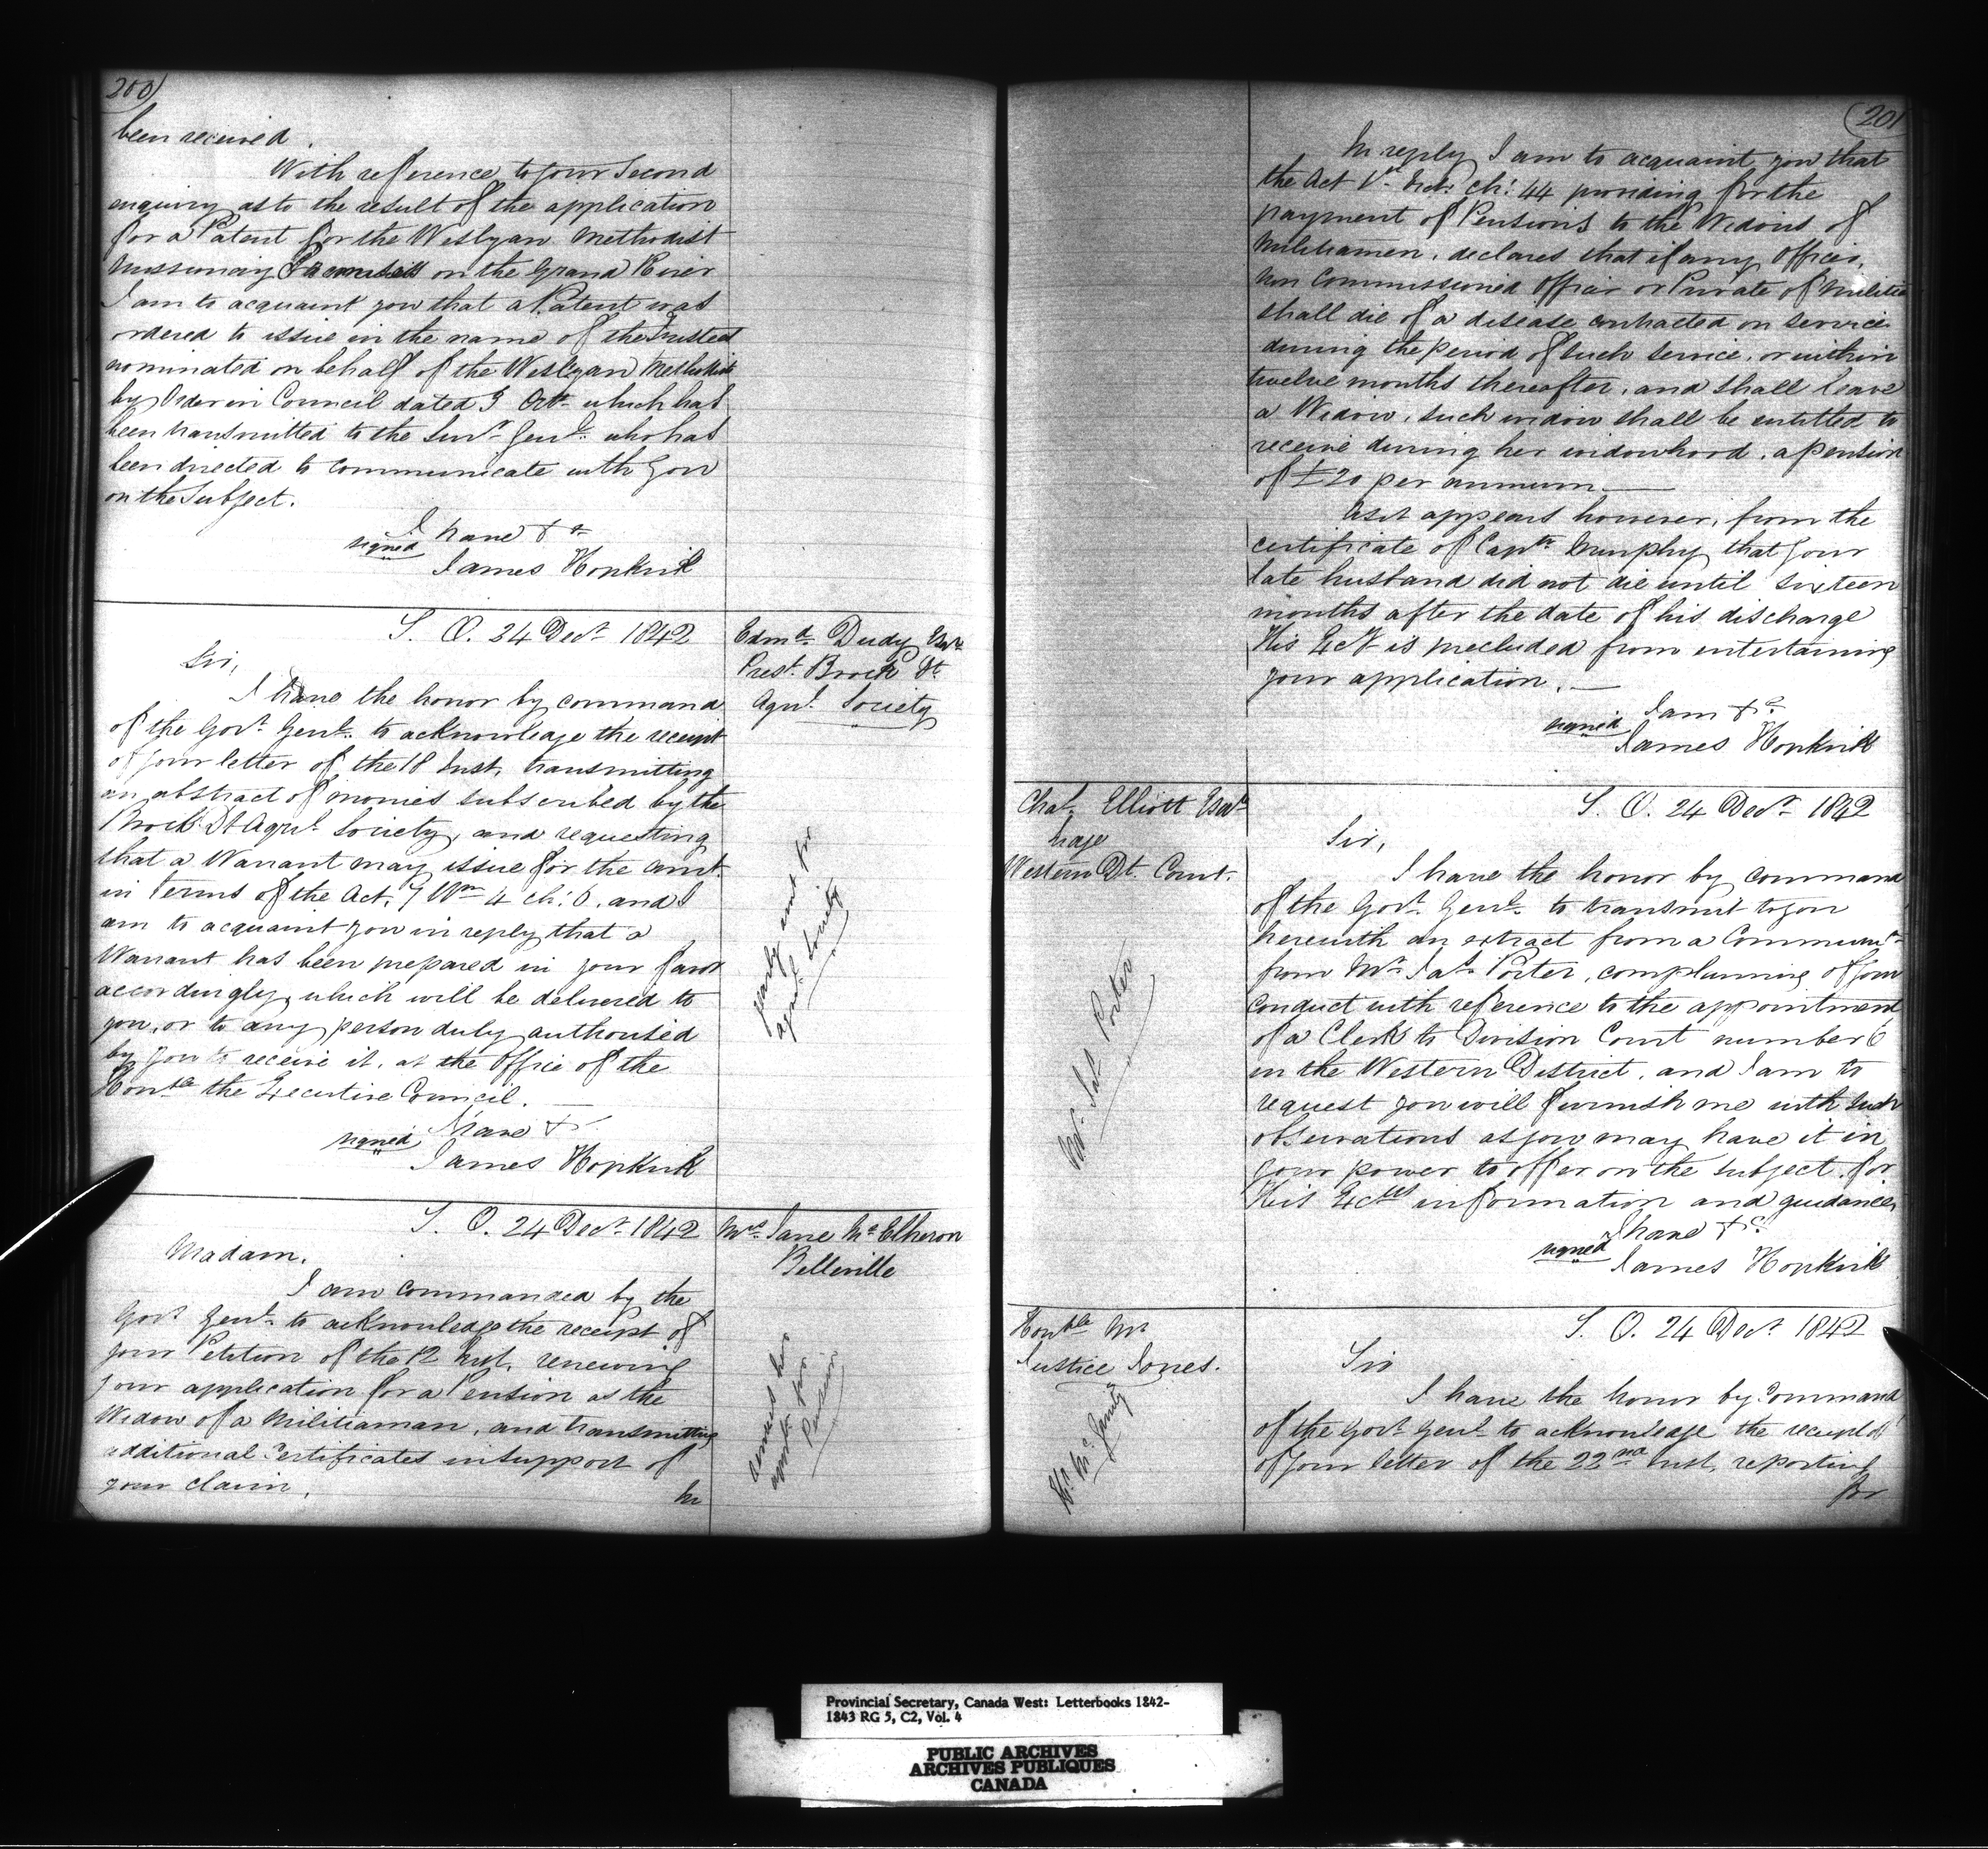 200
been received.
With reference to your Second
enquiry as to the result of the application
for a Patent for the Wesleyan Methodist
Missionary on the Grand River
I am to acquaint you that a Patent was
ordered to issue in the name of the Trustees
nominated on behalf of the Wesleyan Methodists
by Order in Council dated 3 Octr. which has
been transmitted to the Survr. Genl. who has
been directed to communicate with you
on the Subject.
I have &c
signed
James Hopkirk
S. O. 24 Decr. 1842
Edmd. Dudy Esqr.
Prest. Brock Dt.
Agrl. Society
Sir,
I have the honor by command
of the Govr. Genl. to acknowledge the receipt
of your letter of the 18 Inst. transmitting
an abstract of monies subscribed by the
Brock Dt Agrl. Society, and requesting
that a Warrant may issue for the amt.
in Terms of the Act, 7 Wm 4 ch: 6, and I
am to acquaint you in reply, that a
Warrant has been prepared in your favor
accordingly, which will be delivered to
you, or to any person duly authorised
by you to receive it, at the Office of the
Honble the Executive Council.
yearly amt for
agril Society
I have &c
signed
James Hopkirk
S. O. 24 Decr. 1842
Mrs. Jane McElheron
Belleville
Madam.
I am commanded by the
Govr. Genl. to acknowledge the receipt of
your Petition of the 12 Inst. renewing
your application for a Pension as the
Widow of a Militiaman, and transmitting
additional Certificates in support of
your claim.
In
renews her
for
Pension
201
In reply I am to acquaint you that
the Act Vict. ch: 44 providing for the
payment of Pensions to the Widows of
Militiamen, declares that if any Officer,
Non Commissioned Officer or Private of Militia
shall die of a disease contracted on service
during the period of such service, or within
twelve months thereafter, and shall leave
a Widow, such widow shall be entitled to
receive during her widowhood, a pension
of £20 per annum.
As it appears however, from the
certificate of Captn. Murphy that your
late husband did not die until sixteen
months after the date of his discharge
His Excy is precluded from entertaining
your application.
I am &c.
signed
James Hopkirk
Chas. Elliott Esqr.
Judge
Western Dt. Court.
S. O. 24 Decr. 1842
Sir,
I have the honor by command
of the Govr. Genl. to transmit to you
herewith an extract from a Communn.
from Mr. Jas. Porter, complaining of your
conduct with reference to the appointment
of a Clerk to Division Court number 6
in the Western District, and I am to
request you will furnish me with such
observations as you may have it in
your power to offer on the subject for
His Excys information and guidance,
Mr. Jas. Porter
I have &c.
signed
James Hopkirk
Honble Mr.
Justice Jones.
S. O. 24 Decr. 1842
Sir
I have the honor by Command
of the Govr. Genl. to acknowledge the receipt of
of your letter of the 22nd Inst. reporting
for
Provincial Secretary, Canada West: Letterbooks 1842-
1843 RG 5, C2, Vol. 4
PUBLIC ARCHIVES
ARCHIVES PUBLIQUES
CANADA